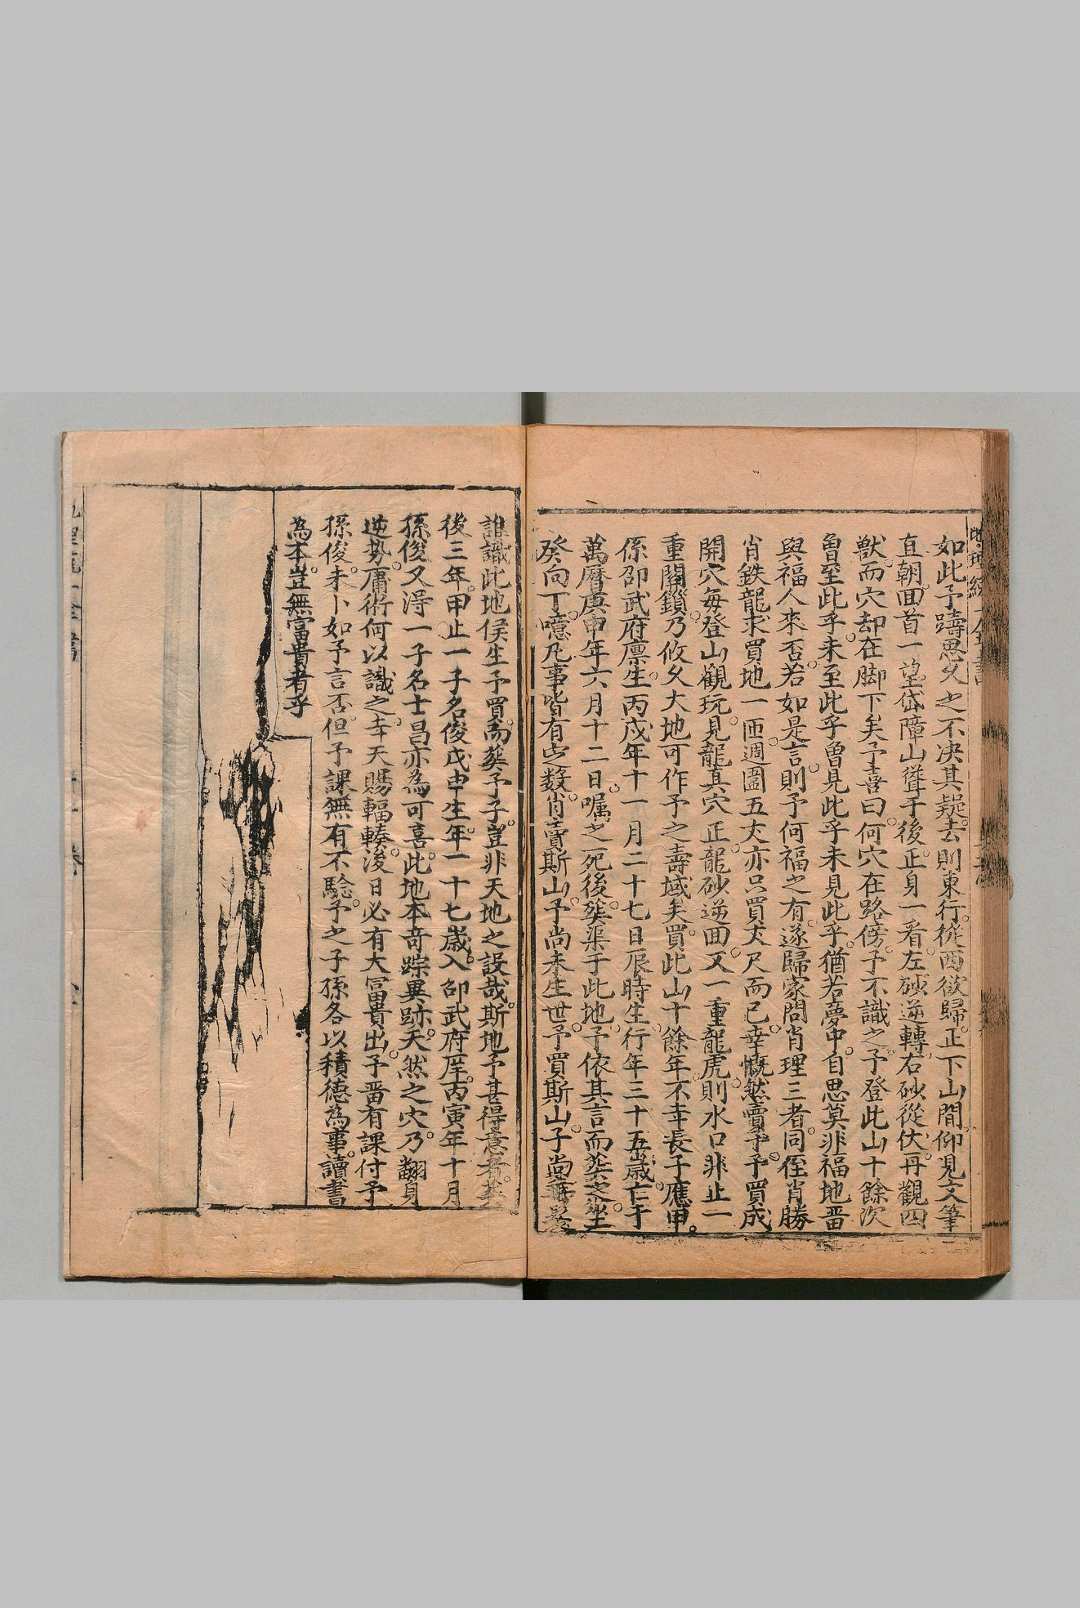 如此予躊思久之不决其疑去則東行從西欲歸正下山間仰見文筆
直朝回首一望岱障山聳于後正身一看左砂逆轉右砂從伏再觀四
獸而穴却在脚下矣予喜曰何穴在路傍予不識之予登此山十餘次
曾至此乎未至此乎曾見此乎未見此乎猶若夢中自思莫非福地畱
與福人來否若如是言則予何福之有遂歸家問肖理三者同侄肖勝
肖鉄龍求買地一匝週圍五丈亦只買丈尺而已幸慨然賣予予買成
開穴每登山觀玩見龍真穴正龍砂逆回又一重龍虎則水口非止一
重關鎖乃攸久大地可作予之壽域矣買此山十餘年不幸長子應甲
係邵武府廪生丙戍年十一月二十七日辰時生行年三十五歲亡于
萬曆庚申年六月十二日囑之死後葬渠于此地予依其言而葬之坐
癸向丁噫凡事皆有之数肖賣斯山予尚未生世予買斯山子尚
誰識此地侯生予買而葬予子豈非天地之設哉斯地予甚得意者葬
後三年甲止一子名俊戊申生年一十七歲入邵武府庠丙寅年十月
孫俊又淂一子名士昌亦為可喜此地本奇踪異跡天然之穴乃翻身
逆势庸術何以識之幸天賜輻輳後日必有大富貴出予畱有課付予
孫俊未卜如予言否但予課無有不騐予之子孫各以積德為事讀書
為本豈無富貴者乎